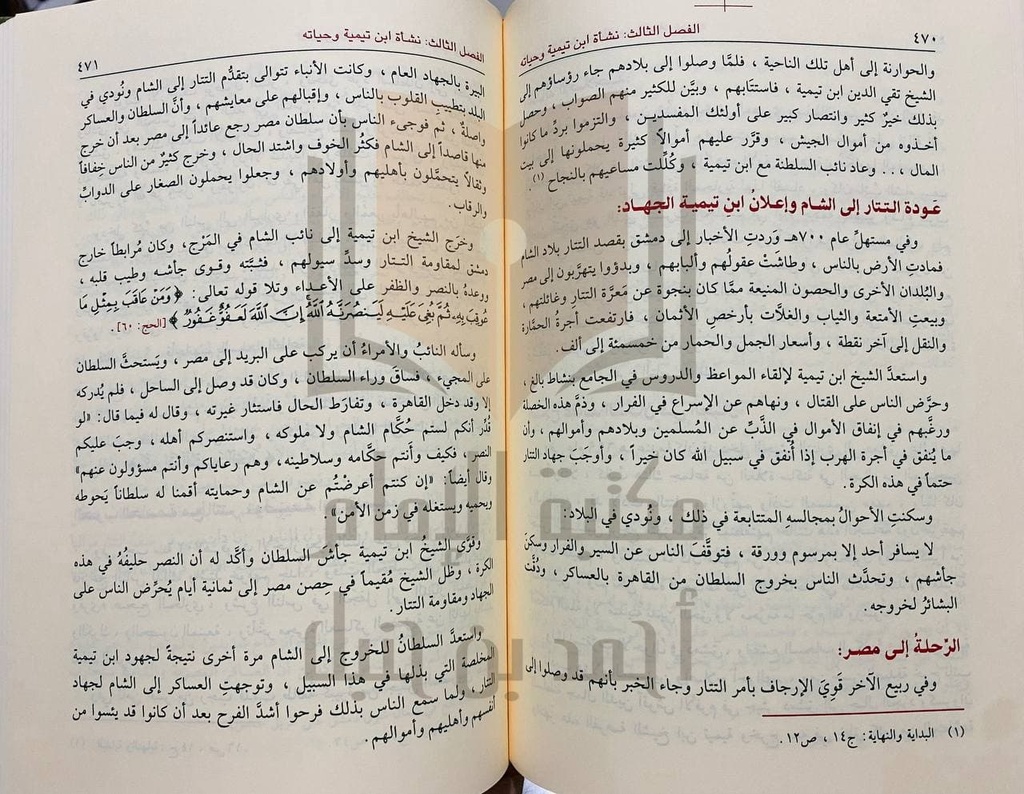 الفصل الثالث: نشأة ابن تيمية وحياته
٤٧٠
والحوارنة إلى أهل تلك الناحية ، فلمَّا وصلوا إلى بلادهم جاء رؤساؤهم إلى
الشيخ تقي الدين ابن تيمية ، فاستتابهم ، وبيَّن للكثير منهم الصواب ، وحصل
بذلك خيرٌ كثير وانتصار كبير على أولئك المفسدين ، والتزموا بردِّ ما كانوا
أخذوه من أموال الجيش ، وقرَّر عليهم أموالاً كثيرة يحملونها إلى بيت
المال ... وعاد نائب السلطنة مع ابن تيمية ، وكُلِّلت مساعيهم بالنجاح (١).
عَودة التتار إلى الشام وإعلانُ ابنِ تيمية الجهاد:
وفي مستهلِّ عام ٧٠٠هـ وَردتِ الأخبار إلى دمشق بقصد التتار بلاد الشام
فمادتِ الأرض بالناس ، وطاشَتْ عقولُهم وألبابهم ، وبدؤوا يتهرَّبون إلى مصر
والبُلدان الأخرى والحصون المنيعة ممَّا كان بنجوة عن مَعرَّة التتار وغائلتهم ،
وبيعتِ الأمتعة والثياب والغلاَّت بأرخصِ الأثمان ، فارتفعت أجرةُ الحمَّارة
والنقل إلى آخر نقطة ، وأسعار الجمل والحمار من خمسمئة إلى ألف.
واستعدَّ الشيخ ابن تيمية لإلقاء المواعظ والدروس في الجامع بنشاط بالغ ،
وحرَّض الناس على القتال ، ونهاهم عن الإسراع في الفرار ، وذمَّ هذه الخصلة
ورغَّبهم في إنفاق الأموال في الذَّبِّ عن المُسلمين وبلادهم وأموالهم ، وأن
ما يُنفق في أجرة الهرب إذا أُنفق في سبيل الله كان خيراً ، وأوجَبَ جهاد التتار
حتماً في هذه الكرة.
وسكنتِ الأحوالُ بمجالسهِ المتتابعة في ذلك ، ونُودي في البلاد:
لا يسافر أحد إلا بمرسوم وورقة ، فتوقَّفَ الناس عن السير والفرار وسكنَ
جأشهم ، وتحدَّث الناس بخروج السلطان من القاهرة بالعساكر ، ودُقَّت
البشائرُ لخروجه.
الرِّحلةُ إلى مصر:
وفي ربيع الآخر قَوِيَ الإرجاف بأمر التتار وجاء الخبر بأنهم قد وصلوا إلى
(١) البداية والنهاية: ج١٤ ، ص١٢.
الفصل الثالث: نشأة ابن تيمية وحياته
٤٧١
البيرة بالجهاد العام ، وكانت الأنباء تتوالى بتقدُّم التتار إلى الشام ونُودي في
البلد بتطييبِ القلوب بالناس ، وإقبالهم على معايشهم ، وأنَّ السلطان والعساكر
واصلةٌ ، ثم فوجىء الناس بأن سلطان مصر رجع عائداً إلى مصر بعد أن خرج
منها قاصداً إلى الشام فكثُر الخوف واشتد الحال ، وخرج كثيرٌ من الناس خِفافاً
وثقالاً يتحمَّلون بأهليهم وأولادهم ، وجعلوا يحملون الصغار على الدوابِّ
والرقاب.
وخرَج الشيخ ابن تيمية إلى نائب الشام في المَرْج، وكان مُرابطاً خارج
دمشق لمقاومة التتار وسدِّ سيولهم ، فثبَّته وقوى جأشه وطيب قلبه ،
ووعدهُ بالنصر والظفر على الأعداء وتلا قوله تعالى: ﴿ وَمَنْ عَاقَبَ بِمِثْلِ مَا
عُوقِبَ بِهِ، ثُمَّ بُغِيَ عَلَيْهِ لَيَنصُرَنَّهُ اللَّهُ إِنَّ اللَّهَ لَعَفُوٌّ غَفُورٌ ﴾ [الحج: ٦٠].
وسأله النائبُ والأمراءُ أن يركب على البريد إلى مصر ، ويَستحثَّ السلطان
على المجيء ، فساقَ وراء السلطان ، وكان قد وصل إلى الساحل ، فلم يُدركه
إلا وقد دخل القاهرة ، وتفارَط الحال فاستثار غيرته ، وقال له فيما قال: «لو
قُدِّر أنكم لستم حُكَّام الشام ولا ملوكه ، واستنصركم أهله ، وجبَ عليكم
النصر ، فكيف وأنتم حكَّامه وسلاطينه، وهم رعاياكم وأنتم مسؤولون عنهم»
وقال أيضاً: «إن كنتم أعرضتُم عن الشام وحمايته أقمنا له سلطاناً يَحوطه
ويحميه ويستغله في زمن الأمن».
وقوَّى الشيخُ ابن تيمية جأشَ السلطان وأكَّد له أن النصر حليفُهُ في هذه
الكرة ، وظل الشيخ مُقيماً في حِصن مصر إلى ثمانية أيام يُحرِّض الناس على
الجهاد ومقاومة التتار.
واستعدَّ السلطانُ للخروج إلى الشام مرة أخرى نتيجةً لجهود ابن تيمية
المخلصة التي بذلها في هذا السبيل ، وتوجهتِ العساكر إلى الشام لجهاد
التتار ، ولما سمع الناس بذلك فرحوا أشدَّ الفرح بعد أن كانوا قد يئسوا من
أنفسهم وأهليهم وأموالهم.
مكتبة الإمام
أحمد بن حنبل